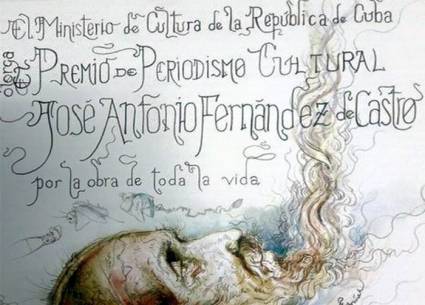 El Ministerio de Cultura de la República de Cuba
otorga el Premio de Periodismo Cultural
José Antonio Fernández de Castro
por la obra de toda la vida